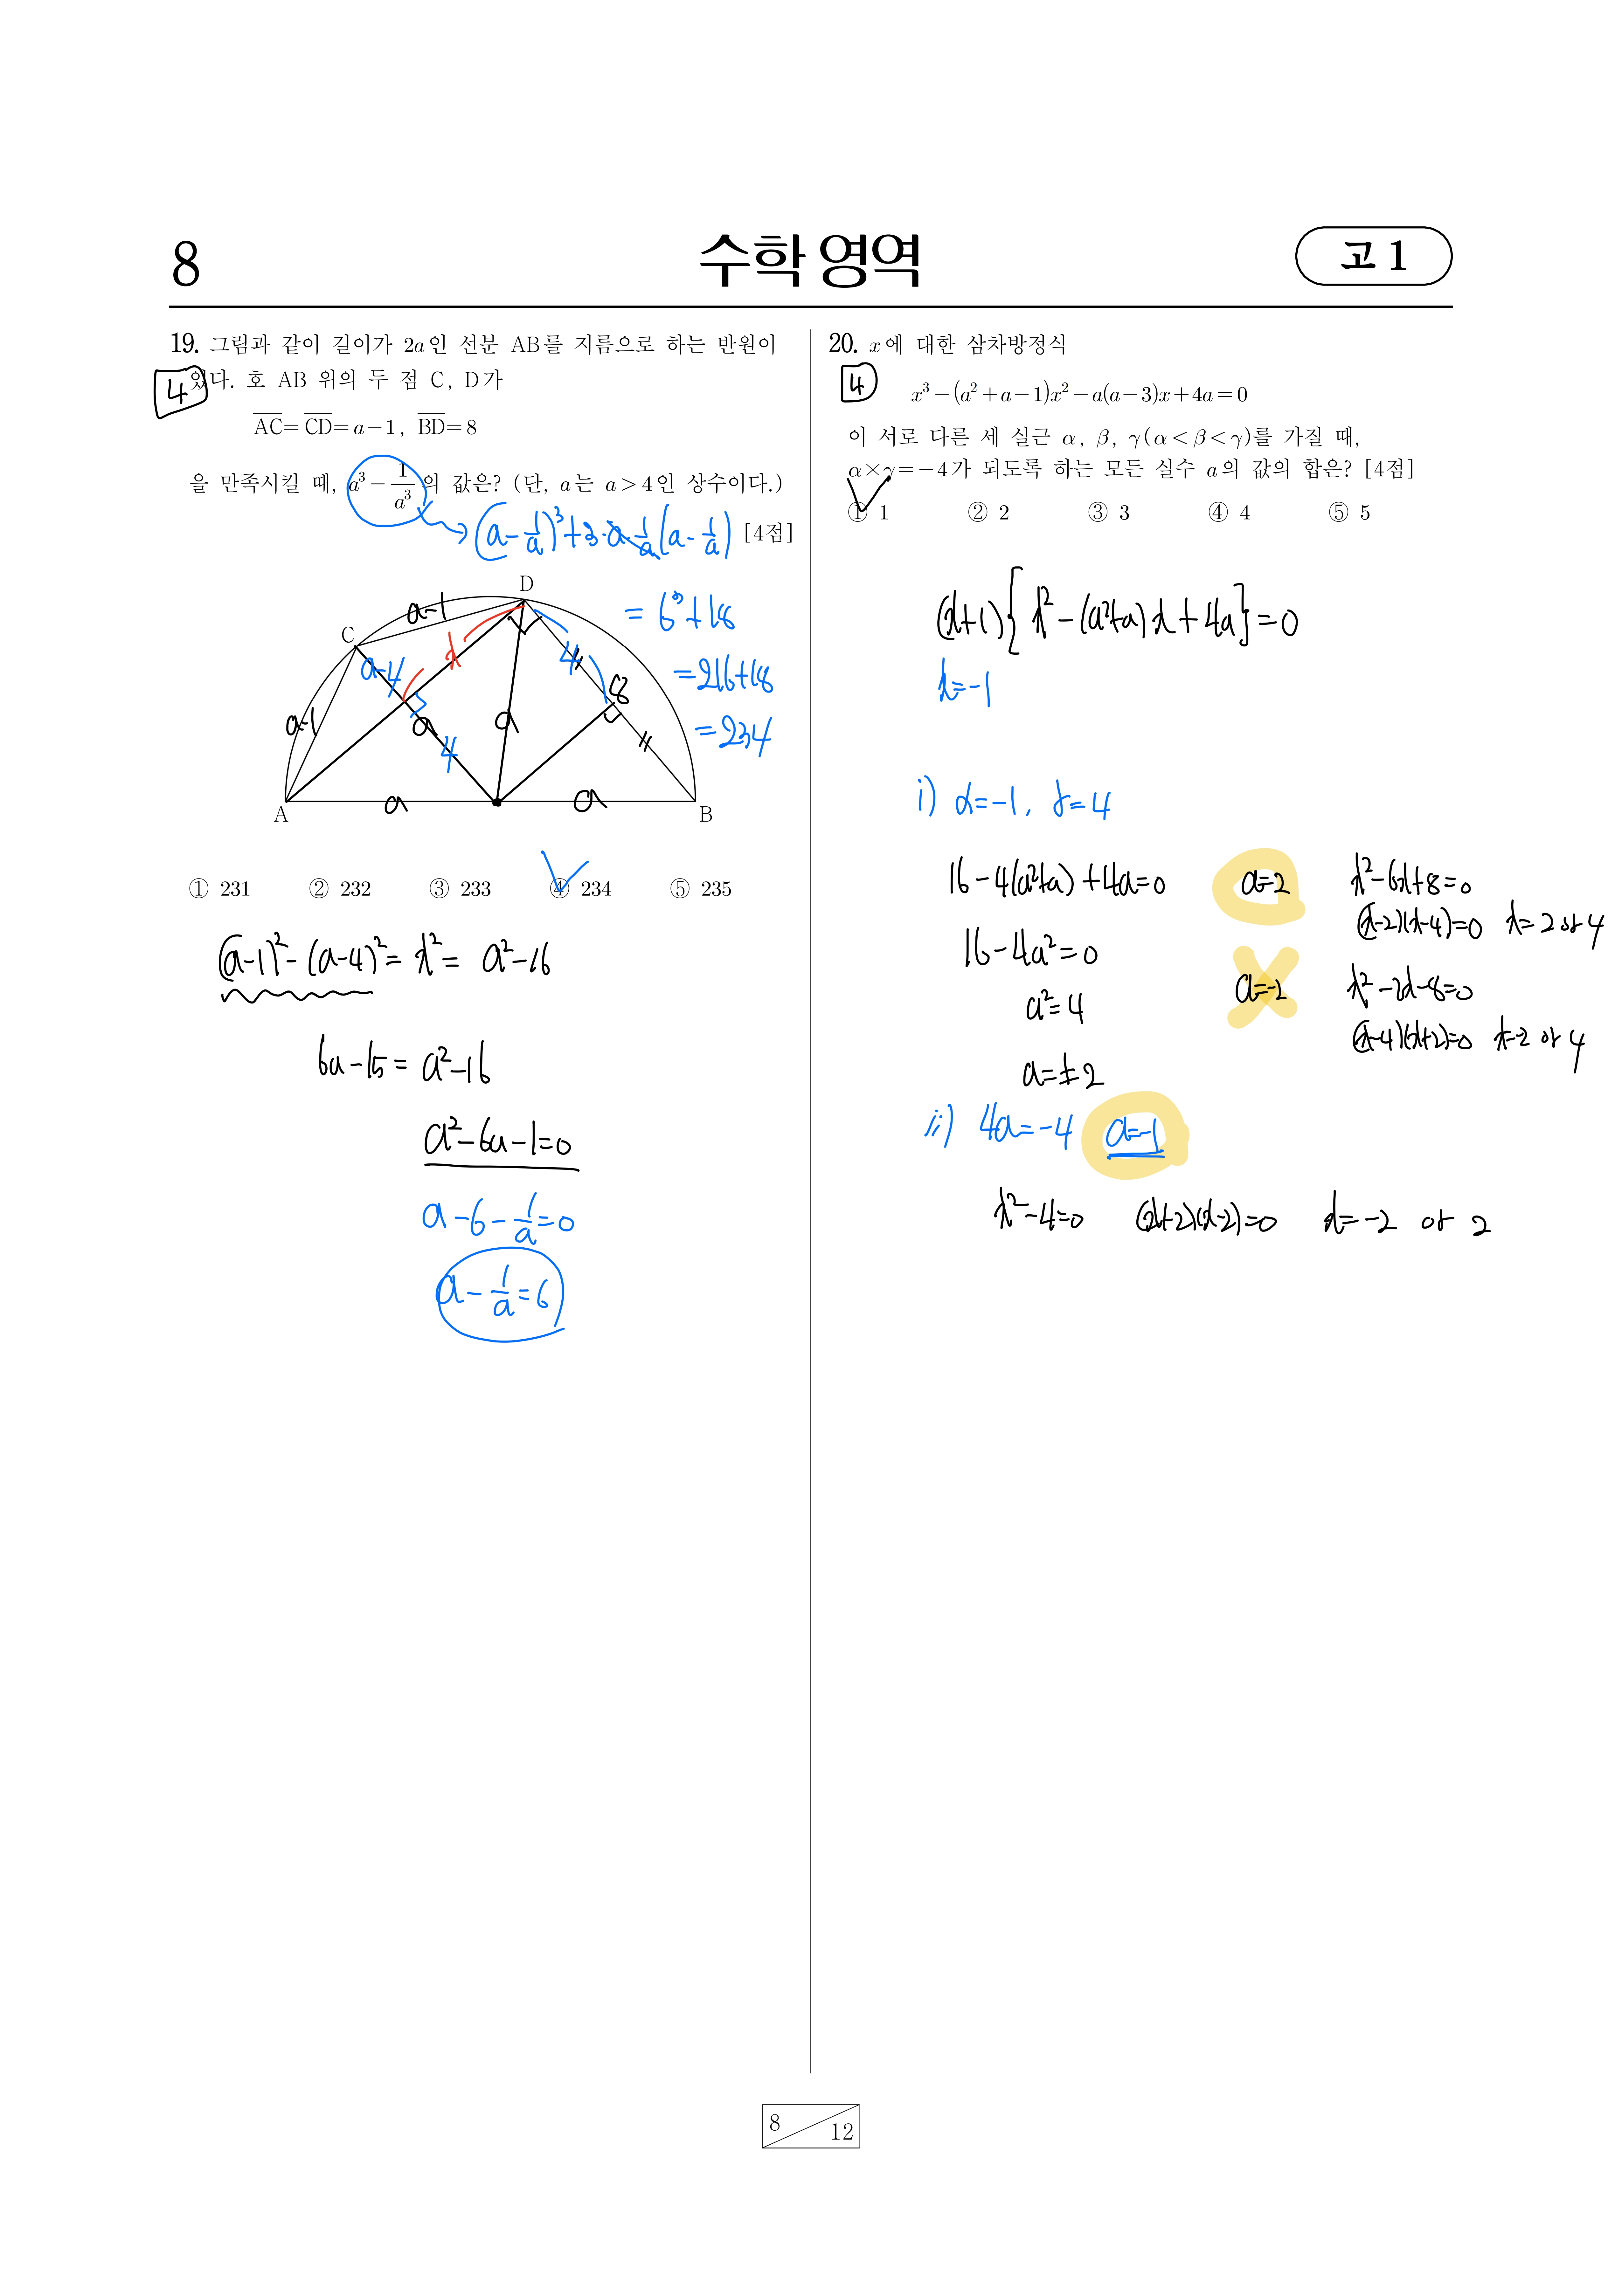 8
수학 영역
고 1
19. 그림과 같이 길이가 2a인 선분 AB를 지름으로 하는 반원이
있다. 호 AB 위의 두 점 C, D가
4
AC=CD=a-1, BD=8
을 만족시킬 때, a³-1/a³의 값은? (단, a는 a>4인 상수이다.)
[4점]
(a-1/a)³+3·a·1/a(a-1/a)
=6³+18
=216+18
=234
D
C
A
B
a-1
a-1
a-4
x
4
8
a
a
4
a
a
① 231 ② 232 ③ 233 ④ 234 ⑤ 235
(a-1)²-(a-4)²=x²=a²-16
6a-15=a²-16
a²-6a-1=0
a-6-1/a=0
a-1/a=6
20. x에 대한 삼차방정식
4
x³-(a²+a-1)x²-a(a-3)x+4a=0
이 서로 다른 세 실근 α, β, γ(α<β<γ)를 가질 때,
α×γ=-4가 되도록 하는 모든 실수 a의 값의 합은? [4점]
① 1 ② 2 ③ 3 ④ 4 ⑤ 5
(x+1){x²-(a²+a)x+4a}=0
x=-1
i) α=-1, γ=4
16-4(a²+a)+4a=0 a=2 x²-6x+8=0
(x-2)(x-4)=0 x=2 or 4
16-4a²=0
a=-2 x²-2x-8=0
a²=4
(x-4)(x+2)=0 x=-2 or 4
a=±2
ii) 4a=-4 a=-1
x²-4=0 (x+2)(x-2)=0 x=-2 or 2
8
12